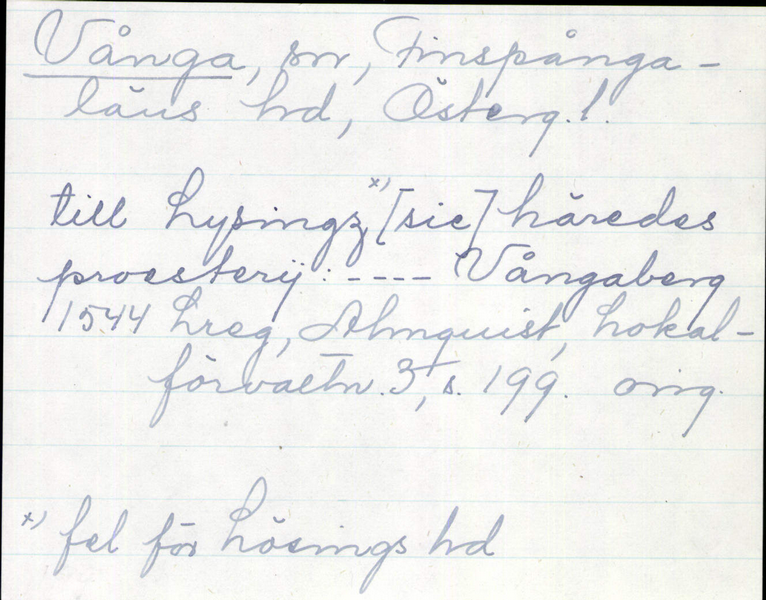 Vånga, sn, Finspånga-
läns hd, Österg. l.
till Lysingz x) [sic] häredes
proesterij: ---- Vångaberg
1544 Lreg, Almquist, Lokal-
förvaltn. 3, s. 199. orig.
x) fel för Lösings hd